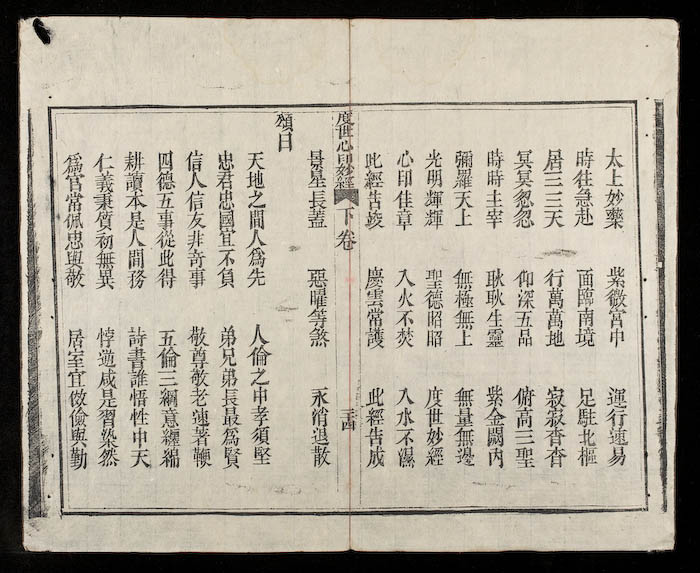 太上妙藥　紫微宮中　運行速易
時往急赴　面臨南境　足駐北樞
居三三天　行萬萬地　寂寂杳杳
冥冥忽忽　仰深五品　俯高三聖
時時主宰　耿耿生靈　紫金闕內
彌羅天上　無極無上　無量無邊
光明輝輝　聖德昭昭　度世妙經
心印佳章　入火不焚　入水不濕
此經告竣　慶雲常護　此經告成
度世心印妙經　下卷　三四
景星長蓋　惡曜等煞　永消退散
頌曰
天地之間人爲先　人倫之中孝須堅
忠君忠國宜不負　弟兄弟長最爲賢
信人信友非奇事　敬尊敬老速著鞭
四德五事從此得　五倫三綱意纏綿
耕讀本是人間務　詩書誰悟性中天
仁義秉質初無異　悖逆咸是習染然
爲官常佩忠與敬　居室宜倣儉與勤